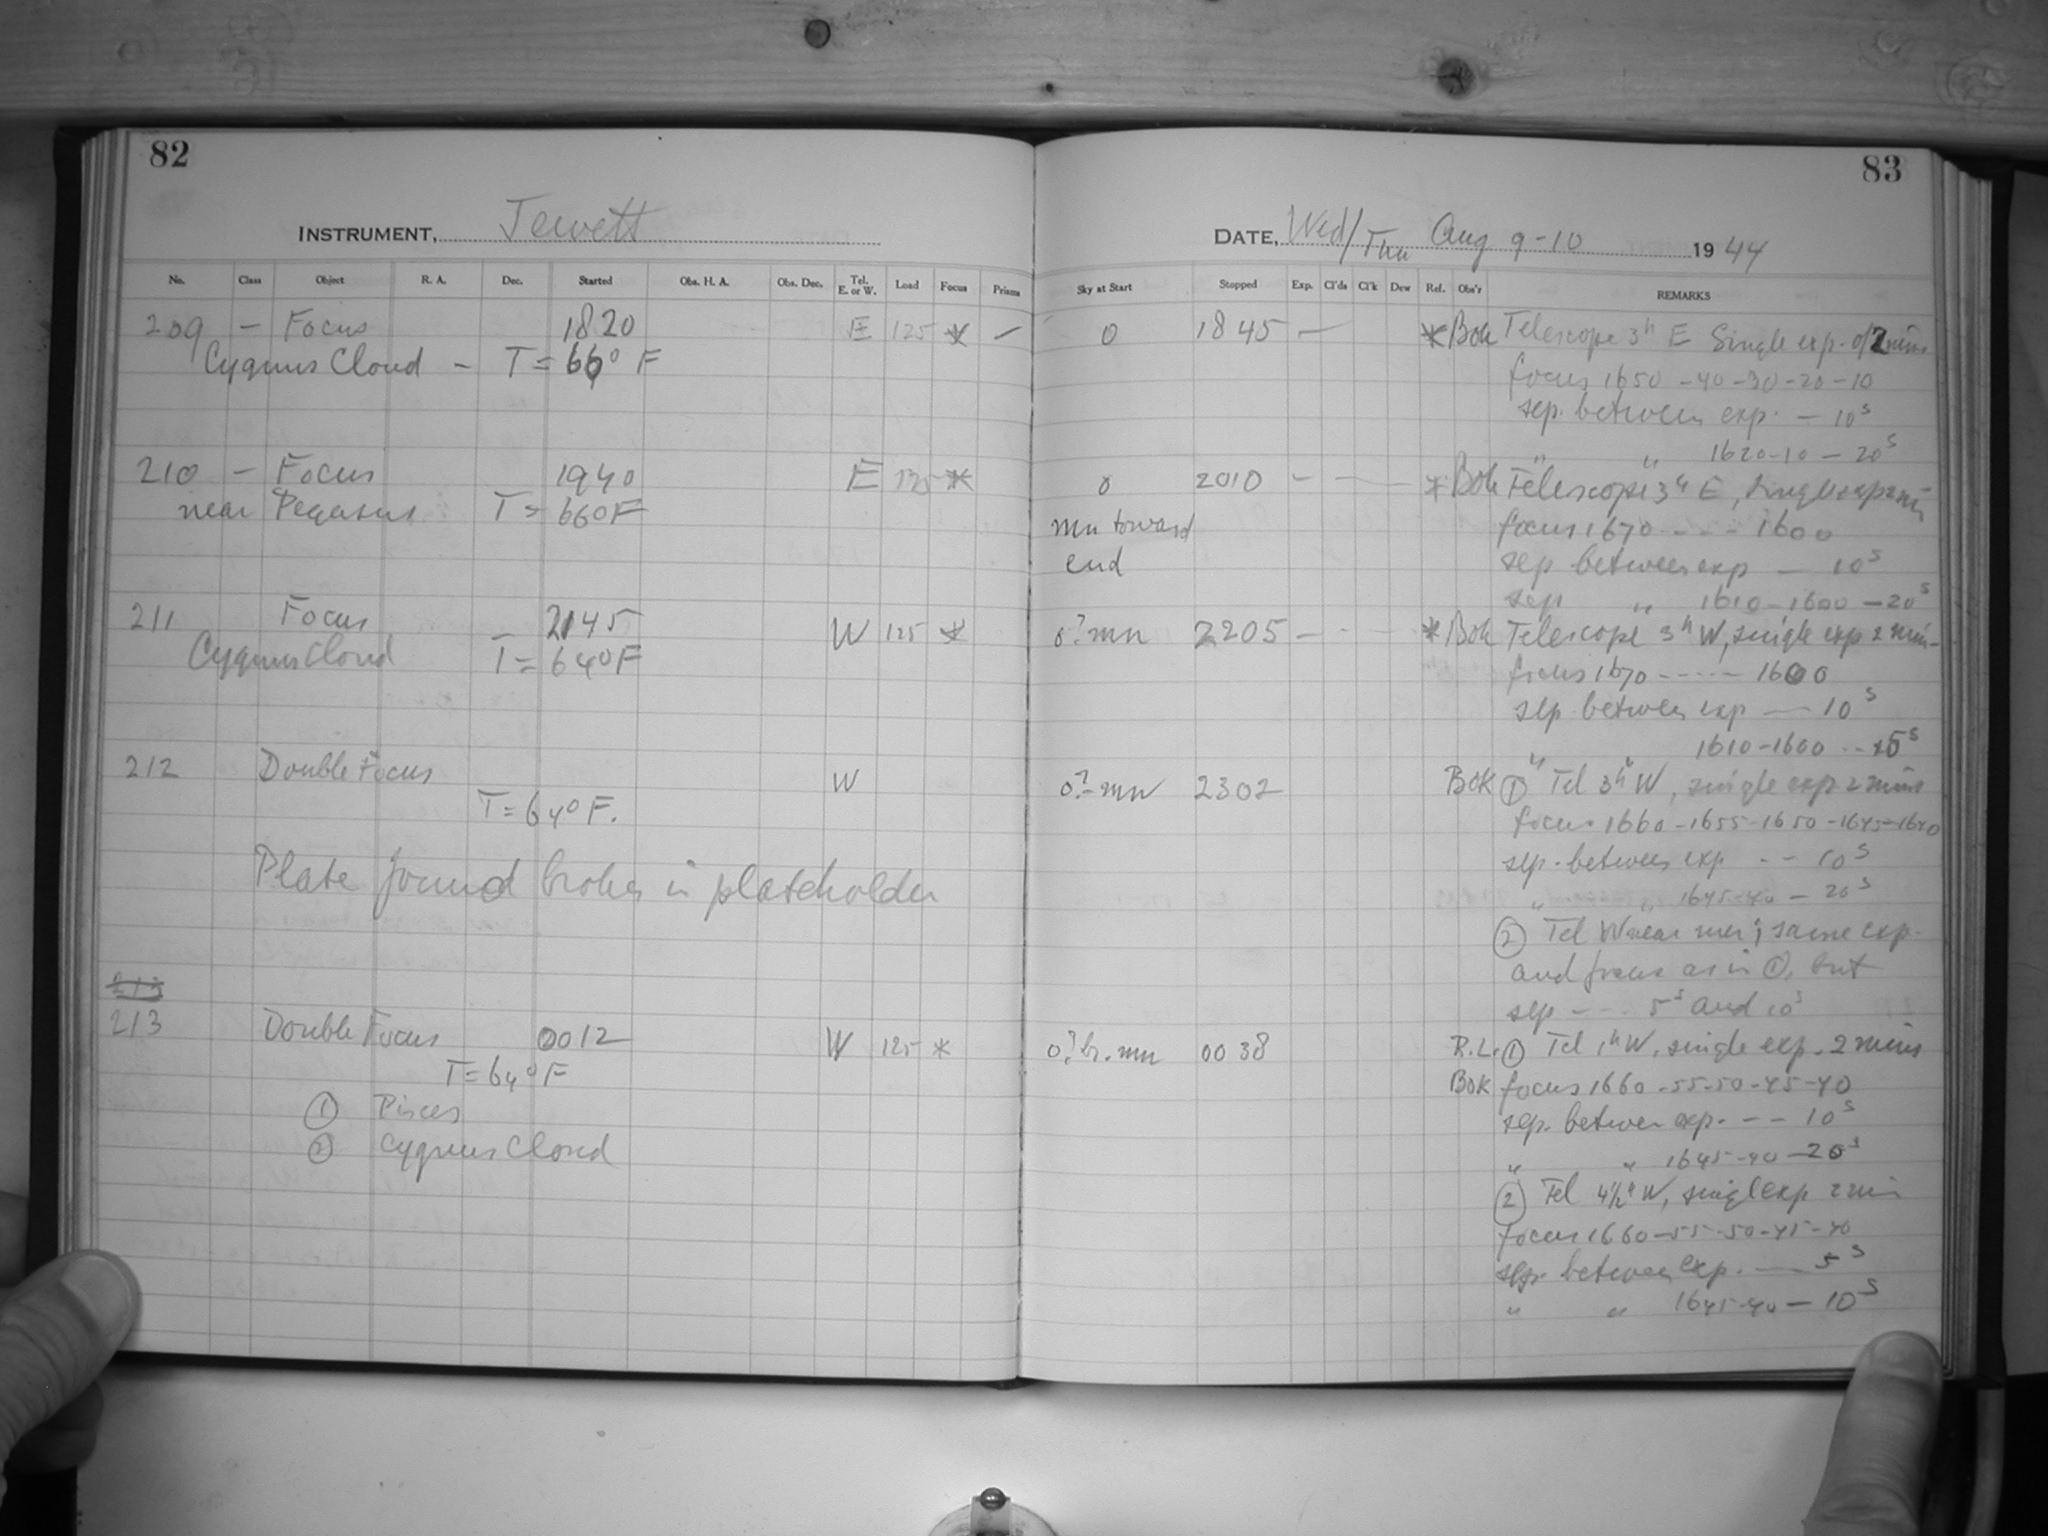 82
INSTRUMENT, Jewett
No. Class Object R. A. Dec. Started Obs. H. A. Obs. Dec. Tel. E. or W. Load Focus Prisms
209 – Focus 1820 E 125 * –
Cygnus Cloud – T = 66° F
210 – Focus 1940 E 125 *
near Pegasus T = 66°F
211 Focus 2145 W 125 *
Cygnus Cloud T = 64°F
212 Double Focus W
T = 64° F.
Plate found broken in plateholder
213
213 Double Focus 0012 W 125 *
T = 64° F
① Pisces
② Cygnus Cloud
83
DATE, Wed/Thu Aug 9-10 1944
Sky at Start Stopped Exp. Cl'ds Cl'k Dew Ref. Obs'r REMARKS
0 1845 – * Bok Telescope 3h E Single exp. of 2 mins
focus 1650 -40-30-20-10
sep. between exp. – 10s
" " 1620-10 – 20s
0 2010 – – * Bok Telescope 3h E, single exp 2 min
mn toward focus 1670 - - - 1600
end sep between exp – 10s
sep " 1610-1600 – 20s
0? mn 2205 – - - * Bok Telescope 3h W, single exp 2 min-
focus 1670 - - - - - 1600
sep. between exp – 10s
" " 1610-1600 --
0? – mn 2302 Bok ① Tel 3h W, single exp 2 mins
focus 1660-1655-1650-1645-1640
sep. between exp -- 10s
" " 1645-40 – 20s
② Tel W near mer; same exp.
and focus as in ①, but
sep - - - 5s and 10s
0? br. mn 0038 R.L. ① Tel 1h W, single exp. 2 mins
Bok focus 1660-55-50-45-40
sep. between exp. -- 10s
" " 1645-40 – 20s
② Tel 4½h W, single exp 2 min
focus 1660-55-50-45-40
sep. between exp. – 5s
" " 1645-40 – 10s